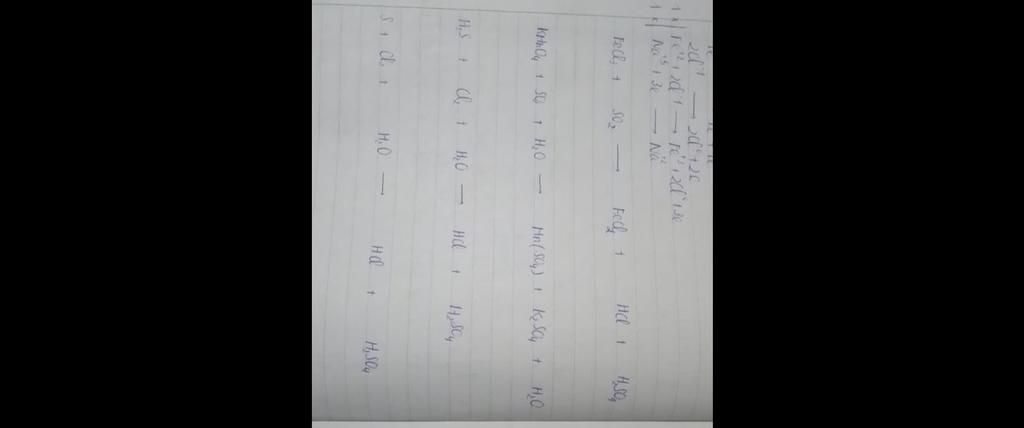 2Cl⁻¹ ⟶ 2Cl⁰ + 2e
1 × | Fe⁺² + 2Cl⁻¹ ⟶ Fe⁺³ + 2Cl⁰ + 3e
1 × | Na⁺⁵ + 3e ⟶ Na⁺²
FeCl₃ + SO₂ ⟶ FeCl₂ + HCl + H₂SO₄
KMnO₄ + SO₂ + H₂O ⟶ Mn(SO₄) + K₂SO₄ + H₂O
H₂S + Cl₂ + H₂O ⟶ HCl + H₂SO₄
S + Cl₂ + H₂O ⟶ HCl + H₂SO₄